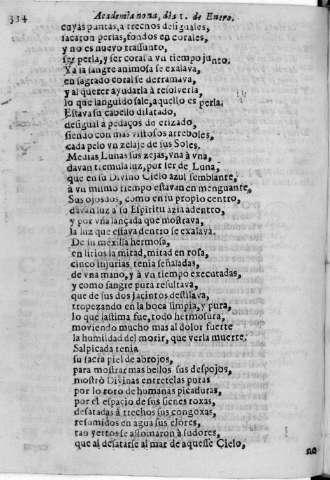 334 Academia nona, dia 1. de Enero.
cuyas puntas, a trechos desiguales,
sacaron perlas, fondos en corales,
y no es nuevo trasunto,
ser perla, y ser coral a vn tiempo junto.
Ya la sangre animosa se exalava,
en sagrado coral se derramava,
y al querer ayudarla à resolverla,
lo que languido sale, aquello es perla.
Estava su cabello dilatado,
desigual à pedaços de erizado,
siendo con mas vistosos arreboles,
cada pelo vn zelaje de sus Soles.
Medias Lunas sus zejas, vna à vna,
davan tremula luz, por ser de Luna,
que en su Divino Cielo azul semblante,
à vn mismo tiempo estavan en menguante,
Sus ojos dos, como en su propio centro,
davan luz a su Espiritu azia dentro,
y por vna lançada que mostrava,
la luz que estava dentro se exalava.
De su mexilla hermosa,
en lirios la mitad, mitad en rosa,
cinco injurias tenia señaladas,
de vna mano, y à vn tiempo executadas,
y como sangre pura resultava,
que de sus dos jacintos destilava,
tropezando en la boca limpia, y pura,
lo que lastima fue, todo hermosura,
moviendo mucho mas al dolor fuerte
la humildad del morir, que verla muerte.
Salpicada tenia
su sacra piel de abrojos,
para mostrar mas bellos sus despojos,
mostrò Divinas entretelas puras
por lo roto de humanas picaduras,
por el espacio de sus sienes roxas,
desatadas à trechos sus congoxas,
resumidos en agua sus
tan yertos se assomaron à sudores,
que al desatarse al mar de aquesse Cielo,
no